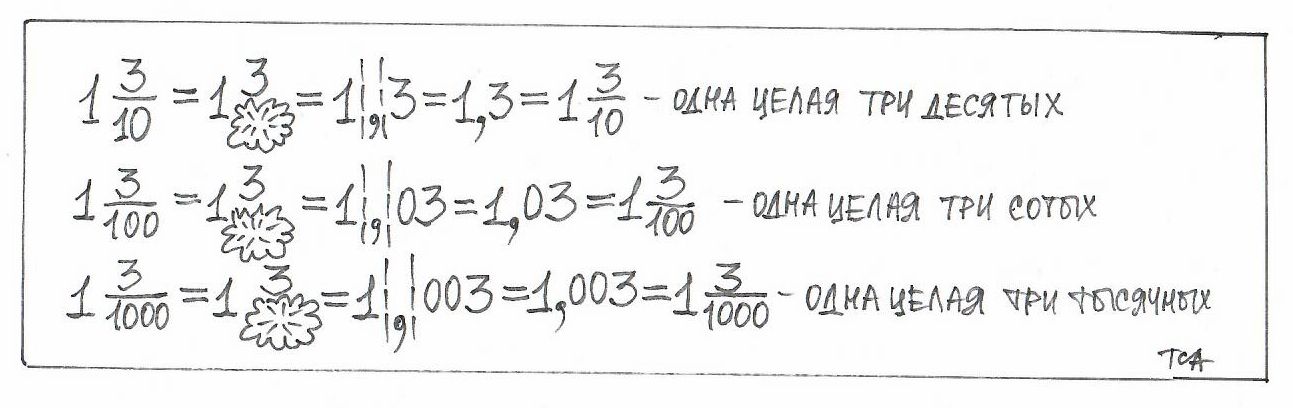 1 3/10 = 1 3 = 1 , 3 = 1,3 = 1 3/10 – ОДНА ЦЕЛАЯ ТРИ ДЕСЯТЫХ
1 3/100 = 1 3 = 1 , 03 = 1,03 = 1 3/100 – ОДНА ЦЕЛАЯ ТРИ СОТЫХ
1 3/1000 = 1 3 = 1 , 003 = 1,003 = 1 3/1000 – ОДНА ЦЕЛАЯ ТРИ ТЫСЯЧНЫХ
ТСА